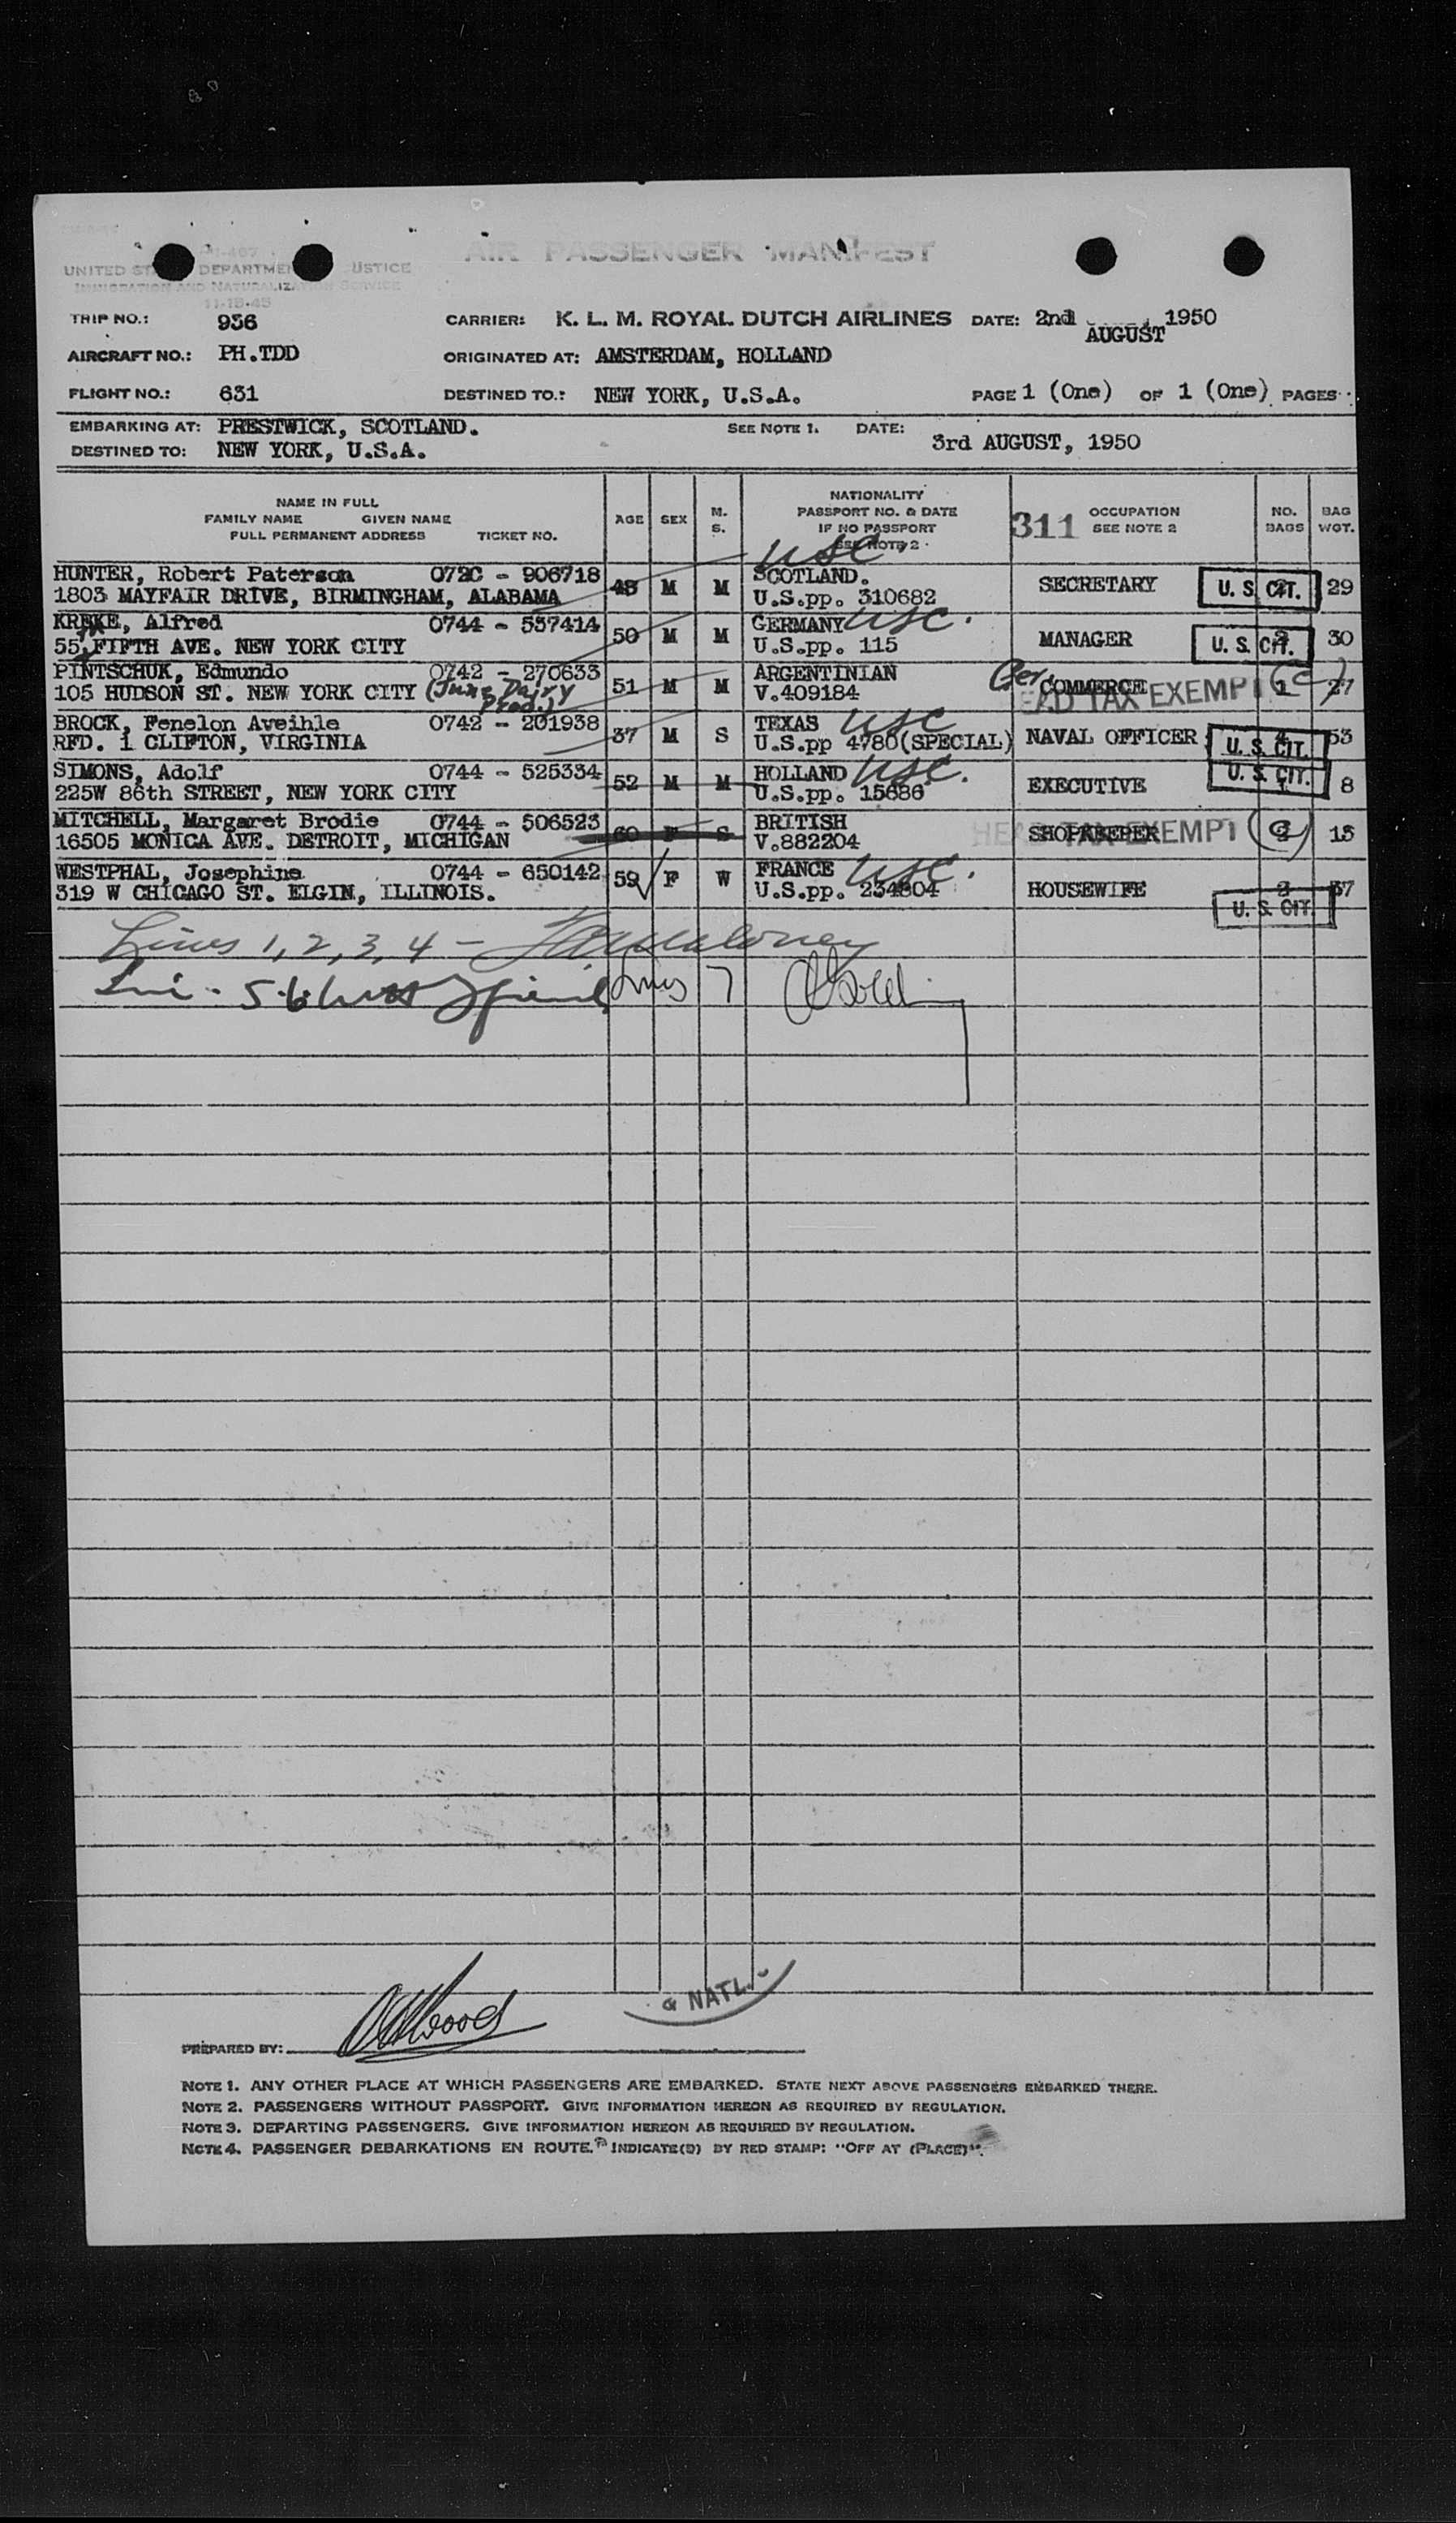 AIR PASSENGER MANIFEST
UNITED DEPARTMENT USTICE
IMMIGRATION AND NATURALIZATION SERVICE
11-15-45
TRIP NO.: 936 CARRIER: K. L. M. ROYAL DUTCH AIRLINES DATE: 2nd AUGUST 1950
AIRCRAFT NO.: PH.TDD ORIGINATED AT: AMSTERDAM, HOLLAND
FLIGHT NO.: 631 DESTINED TO.: NEW YORK, U.S.A. PAGE 1 (One) OF 1 (One) PAGES
EMBARKING AT: PRESTWICK, SCOTLAND. SEE NOTE 1. DATE: 3rd AUGUST, 1950
DESTINED TO: NEW YORK, U.S.A.
NAME IN FULL
FAMILY NAME GIVEN NAME
FULL PERMANENT ADDRESS TICKET NO.
AGE SEX M. S.
NATIONALITY
PASSPORT NO. & DATE
IF NO PASSPORT
SEE NOTE 2
311 OCCUPATION
SEE NOTE 2
NO. BAGS BAG WGT.
HUNTER, Robert Paterson 072C - 906718 48 M M SCOTLAND. USC SECRETARY U. S. CIT. 29
1803 MAYFAIR DRIVE, BIRMINGHAM, ALABAMA U.S.pp. 310682
KREKE, Alfred 0744 - 537414 50 M M GERMANY USC. MANAGER U. S. CIT. 30
55, FIFTH AVE. NEW YORK CITY U.S.pp. 115
PINTSCHUK, Edmundo 0742 - 270633 51 M M ARGENTINIAN COMMERCE HEAD TAX EXEMPT 1 27
105 HUDSON ST. NEW YORK CITY (June Dairy Prod.) V.409184
BROCK, Fenelon Aveihle 0742 - 201938 37 M S TEXAS USC NAVAL OFFICER U. S. CIT. 53
RFD. 1 CLIFTON, VIRGINIA U.S.pp 4780(SPECIAL)
SIMONS, Adolf 0744 - 525334 52 M M HOLLAND USC. EXECUTIVE U. S. CIT. 8
225W 86th STREET, NEW YORK CITY U.S.pp. 15686
MITCHELL, Margaret Brodie 0744 - 506523 60 F S BRITISH SHOPKEEPER HEAD TAX EXEMPT 13
16505 MONICA AVE. DETROIT, MICHIGAN V.882204
WESTPHAL, Josephine 0744 - 650142 59 F W FRANCE USC. HOUSEWIFE U. S. CIT. 37
319 W CHICAGO ST. ELGIN, ILLINOIS. U.S.pp. 234804
Lines 1, 2, 3, 4 -
5-6 Lines 7
& NATL.
PREPARED BY:
NOTE 1. ANY OTHER PLACE AT WHICH PASSENGERS ARE EMBARKED. STATE NEXT ABOVE PASSENGERS EMBARKED THERE.
NOTE 2. PASSENGERS WITHOUT PASSPORT. GIVE INFORMATION HEREON AS REQUIRED BY REGULATION.
NOTE 3. DEPARTING PASSENGERS. GIVE INFORMATION HEREON AS REQUIRED BY REGULATION.
NOTE 4. PASSENGER DEBARKATIONS EN ROUTE. INDICATE(D) BY RED STAMP: "OFF AT (PLACE)".